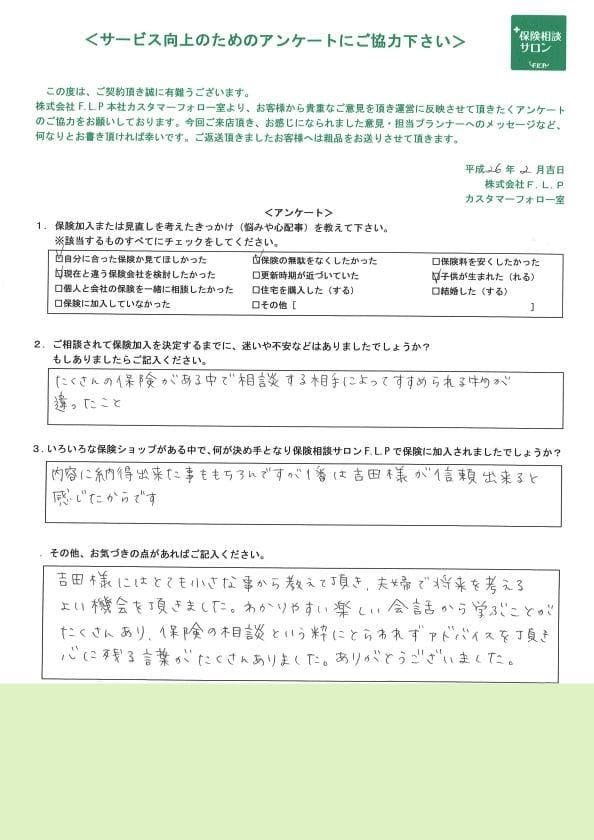 ＜サービス向上のためのアンケートにご協力下さい＞
保険相談
サロン
F.L.P
この度は、ご契約頂き誠に有難うございます。
株式会社F.L.P本社カスタマーフォロー室より、お客様から貴重なご意見を頂き運営に反映させて頂きたくアンケート
のご協力をお願いしております。今回ご来店頂き、お感じになられました意見・担当プランナーへのメッセージなど、
何なりとお書き頂ければ幸いです。ご返送頂きましたお客様へは粗品をお送りさせて頂きます。
平成26年2月吉日
株式会社F.L.P
カスタマーフォロー室
＜アンケート＞
1．保険加入または見直しを考えたきっかけ（悩みや心配事）を教えて下さい。
※該当するものすべてにチェックをしてください。
☑自分に合った保険か見てほしかった ☑保険の無駄をなくしたかった □保険料を安くしたかった
☑現在と違う保険会社を検討したかった □更新時期が近づいていた ☑子供が生まれた（れる）
□個人と会社の保険を一緒に相談したかった □住宅を購入した（する） □結婚した（する）
□保険に加入していなかった □その他［ ］
2．ご相談されて保険加入を決定するまでに、迷いや不安などはありましたでしょうか？
もしありましたらご記入ください。
たくさんの保険がある中で相談する相手によってすすめられる物が
違ったこと
3．いろいろな保険ショップがある中で、何が決め手となり保険相談サロンF.L.Pで保険に加入されましたでしょうか？
内容に納得出来た事ももちろんですが1番は吉田様が信頼出来ると
感じたからです
．その他、お気づきの点があればご記入ください。
吉田様にはとても小さな事から教えて頂き、夫婦で将来を考える
よい機会を頂きました。わかりやすい楽しい会話から学ぶことが
たくさんあり、保険の相談という粋にとらわれずアドバイスを頂き
心に残る言葉がたくさんありました。ありがとうございました。